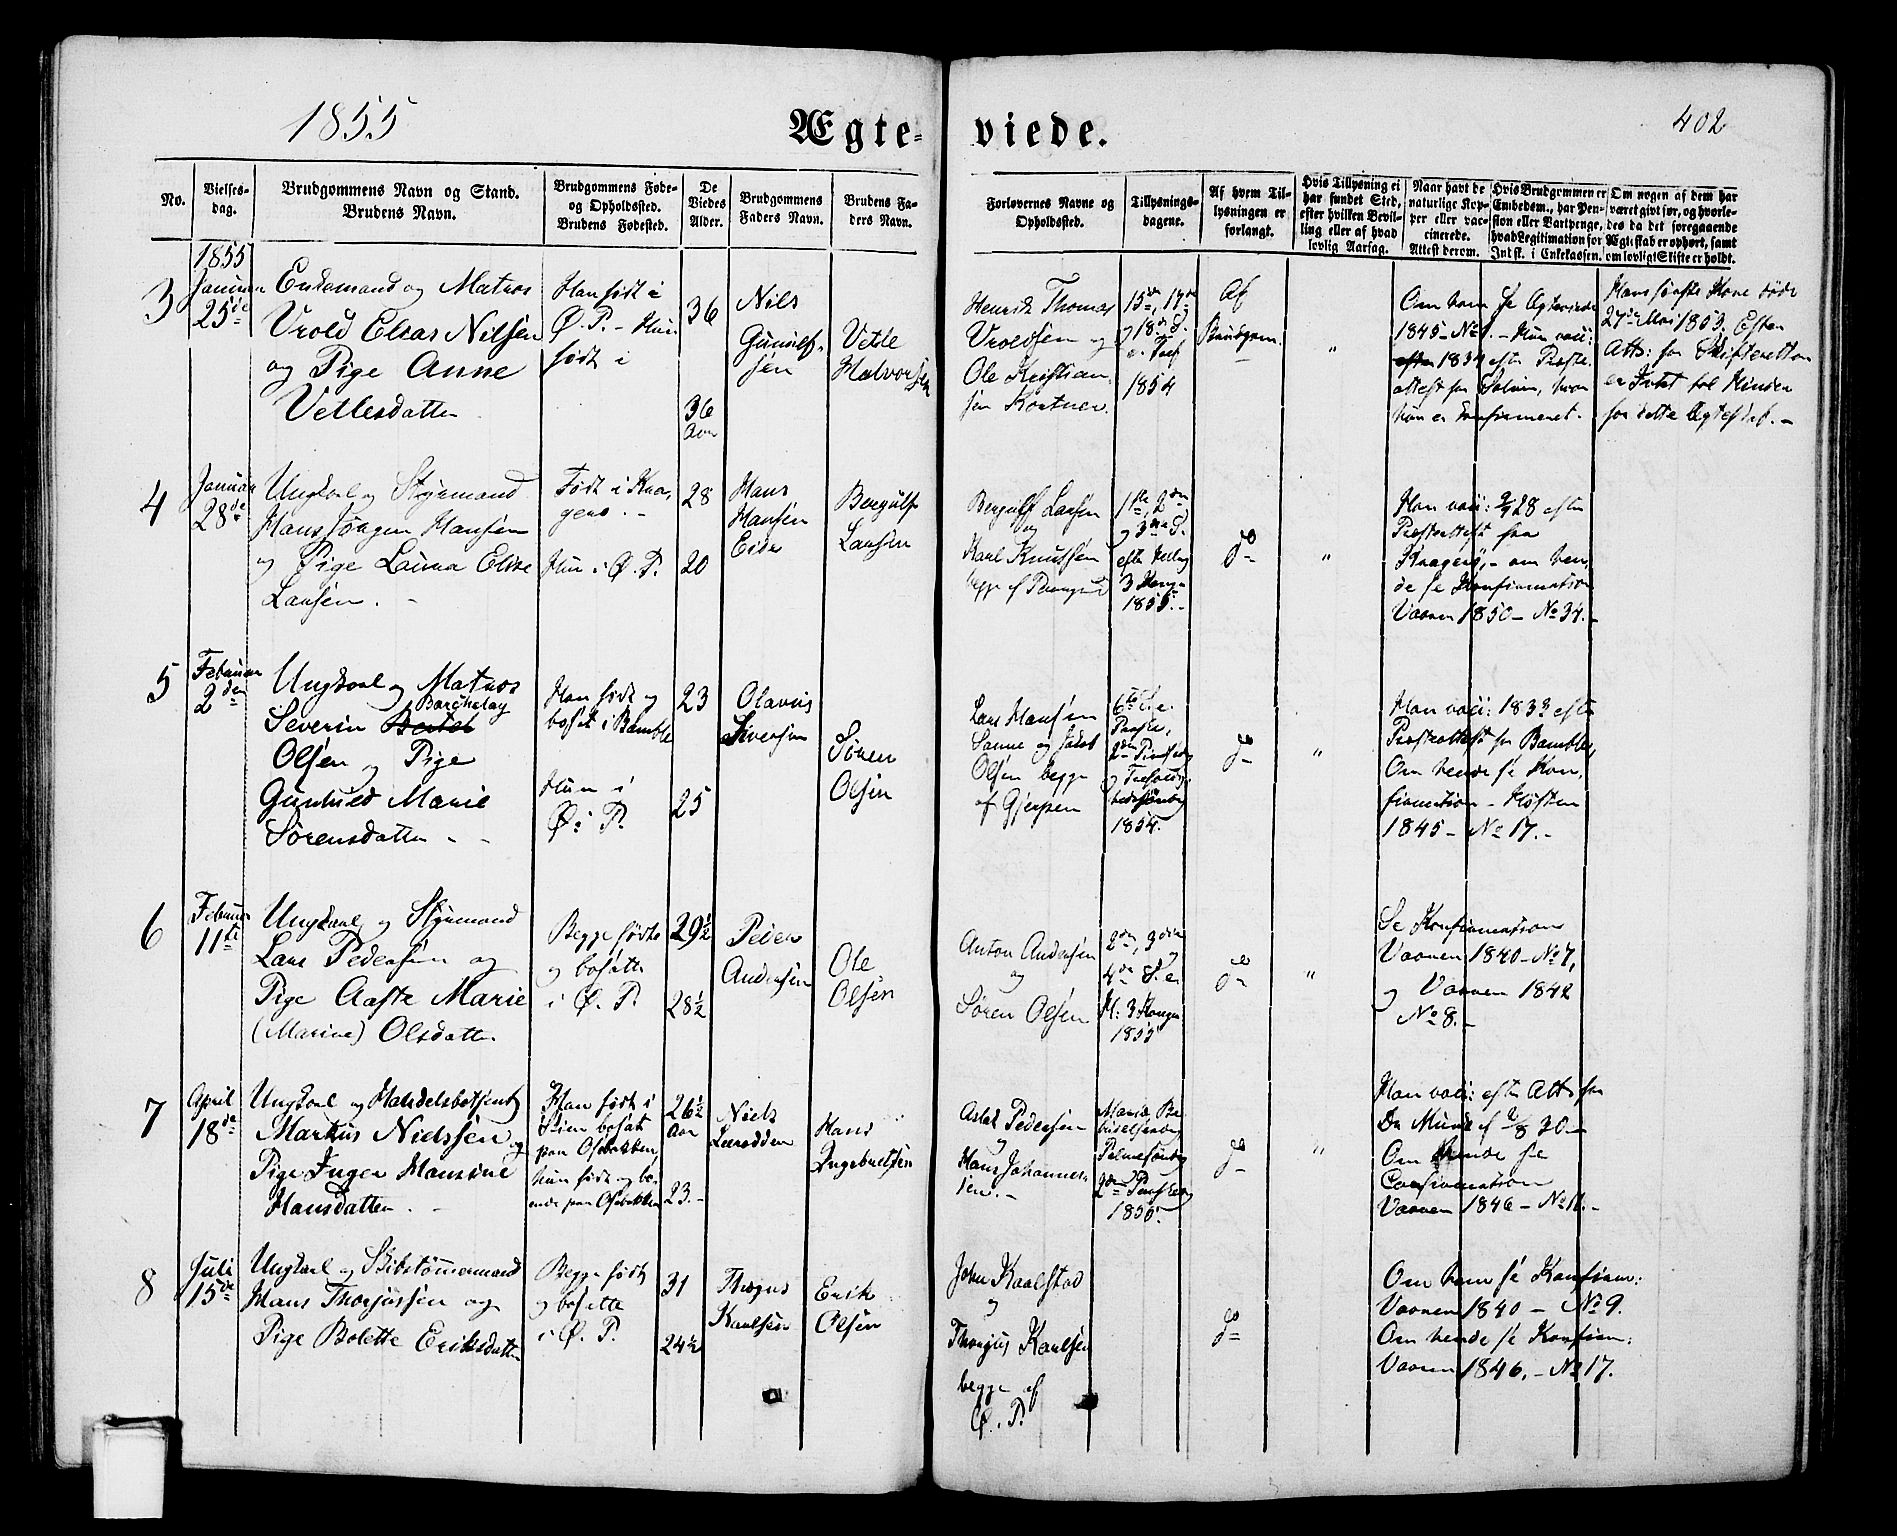 1855
Ægteviede.
402
No.
Vielses-
dag.
Brudgommens Navn og Stand.
Brudens Navn.
Brudgommens Føde-
og Opholdssted.
Brudens Fødested.
De
Viedes
Alder.
Brudgommens
Faders Navn.
Brudens Fa-
ders Navn.
Forlovernes Navne og
Opholdssted.
Tillysnings-
dagene.
Af hvem Til-
lysningen er
forlangt.
Hvis Tillysning ei
har fundet Sted,
efter hvilken Bevil-
ling eller af hvad
lovlig Aarsag.
Naar havt de
naturlige Kop-
per eller vac-
cinerede.
Attest derom.
Hvis Brudgommen er
Embedsm., har Pen-
sion eller Vartpenge,
hvad Legitimation for
Indsk. i Enkekassen.
Om nogen af dem har
været givt før, og hvorle-
des da det foregaaende
Ægteskab er ophørt, samt
om lovligt Skifte er holdt.
3
1855
Januar
25de
Enkemand og Matros
Vrold Elias Nilsen
og Pige Anne
Vetlesdatter
Han født i
Ø. P. - Hun
født i
36
36
Aar
Nils
Gunulf-
sen
Vetle
Halvorsen
Henrik Thomas
Vroldsen og
Ole Kristian-
sen Kortner.
15de, 17de
og 18de S.
e. Tref
1854
Af
Brudgom.
"
Om ham se Ægteviede
1845 - No - Hun vacc:
1834 efter Præste-
attest fra Solum, hvor
hun er konfirmeret. -
Hans første Kone døde
27de Mai 1853. Efter
Att: fra Skifteretten
er Intet til Hinder
for dette Ægteskab. -
4
Januar
28de
Ungkarl og Styrmand
Hans Jørgen Hansen
og Pige Laura Elise
Larsen. -
Født i Kra-
gerø. -
Hun i Ø. P.
28
20
Hans
Hansen
Eide
Bergulf
Larsen
Bergulf Larsen
og
Karl Knutsen
begge af
1ste, 2den
og 3die S.
efter Hellig
3 Konger
1855. -
do
"
Han vacc: 28 efter
Præsteattest fra
Kragerø, - om hen-
de se Konfirmation
Vaaren 1850 - No 34. -
5
Februar
2den
Ungkarl og Matros
Severin Bertel
Olsen og Pige
Gunhild Marie
Sørensdatter - -
Han født og
bosat i Bamble
Hun i
Ø. P.
23
25
Olavus
Siversen
Søren
Olsen
Lars Hansen
Sanne og Jakob
Olsen begge
af Gjerpen
6te S. e.
Paaske,
2den Pintsedag
og Trefoldig-
hedssøndag
1854.
do
"
Han vacc: 1833 efter
Præsteattest fra Bamble,
Om hende se Kon-
firmation - Høsten
1845 - No 17. -
6
Februar
11te
Ungkarl og Styrmand
Lars Pedersen og
Pige Aaste Marie
(Marine) Olsdatter
Begge fødte
og bosatte
i Ø. P.
29½
28½
Peder
Andersen
Ole
Olsen
Anton Andersen
og
Søren Olsen
2den, 3die og
4de S. e.
H: 3 Konger
1855
do
"
Se Konfirmation
Vaaren 1840 - No 7,
og Vaaren 1842
No 8. -
7
April
18de
Ungkarl og Handelsbetjent
Markus Nielssen og
Pige Inger Hansine
Hansdatter. -
Han født i
Skien bosat
paa Osebakken,
hun født og bo-
ende paa Osebakken
26½
Aar
23. -
Niels
Hans
Ingebretsen
Aslak Pedersen
og
Hans Johannes-
sen. -
Mariæ Be-
budelsesdag
Palmesøndag
2den Paaskedag
1855.
do
"
Han vacc: efter Att: fra
Dr Munk af 30 -
Om hende se
Confirmation
Vaaren 1846 - No 11. -
8
Juli
15de
Ungkarl og Skibstømmermand
Hans Thorjussen og
Pige Bolette Eriksdatter
Begge født
og bosatte
i Ø. P.
31
24½
Thorjus
Karlsen
Erik
Olsen
John Kaalstad
og
Thorjus Karlsen
begge af
Ø. P.
do
Om ham se Konfirm:
Vaaren 1840 - No 9.
Om hende se Konfirm:
Vaaren 1846. - No 17.